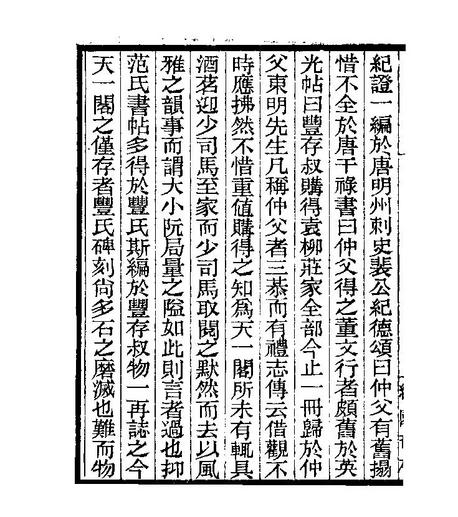 紀證一編於唐明州刺史裴公紀德頌曰仲父有舊搨
惜不全於唐干祿書曰仲父得之董文行者頗舊於英
光帖曰豐存叔購得袁柳莊家全部今止一冊歸於仲
父東明先生凡稱仲父者三恭而有禮志傳云借觀不
時應拂然不惜重值購得之知為天一閣所未有輒具
酒茗迎少司馬至家而少司馬取閱之默然而去以風
雅之韻事而謂大小阮局量之隘如此則言者過也抑
范氏書帖多得於豐氏斯編於豐存叔物一再誌之今
天一閣之僅存者豐氏碑刻尙多石之磨滅也難而物